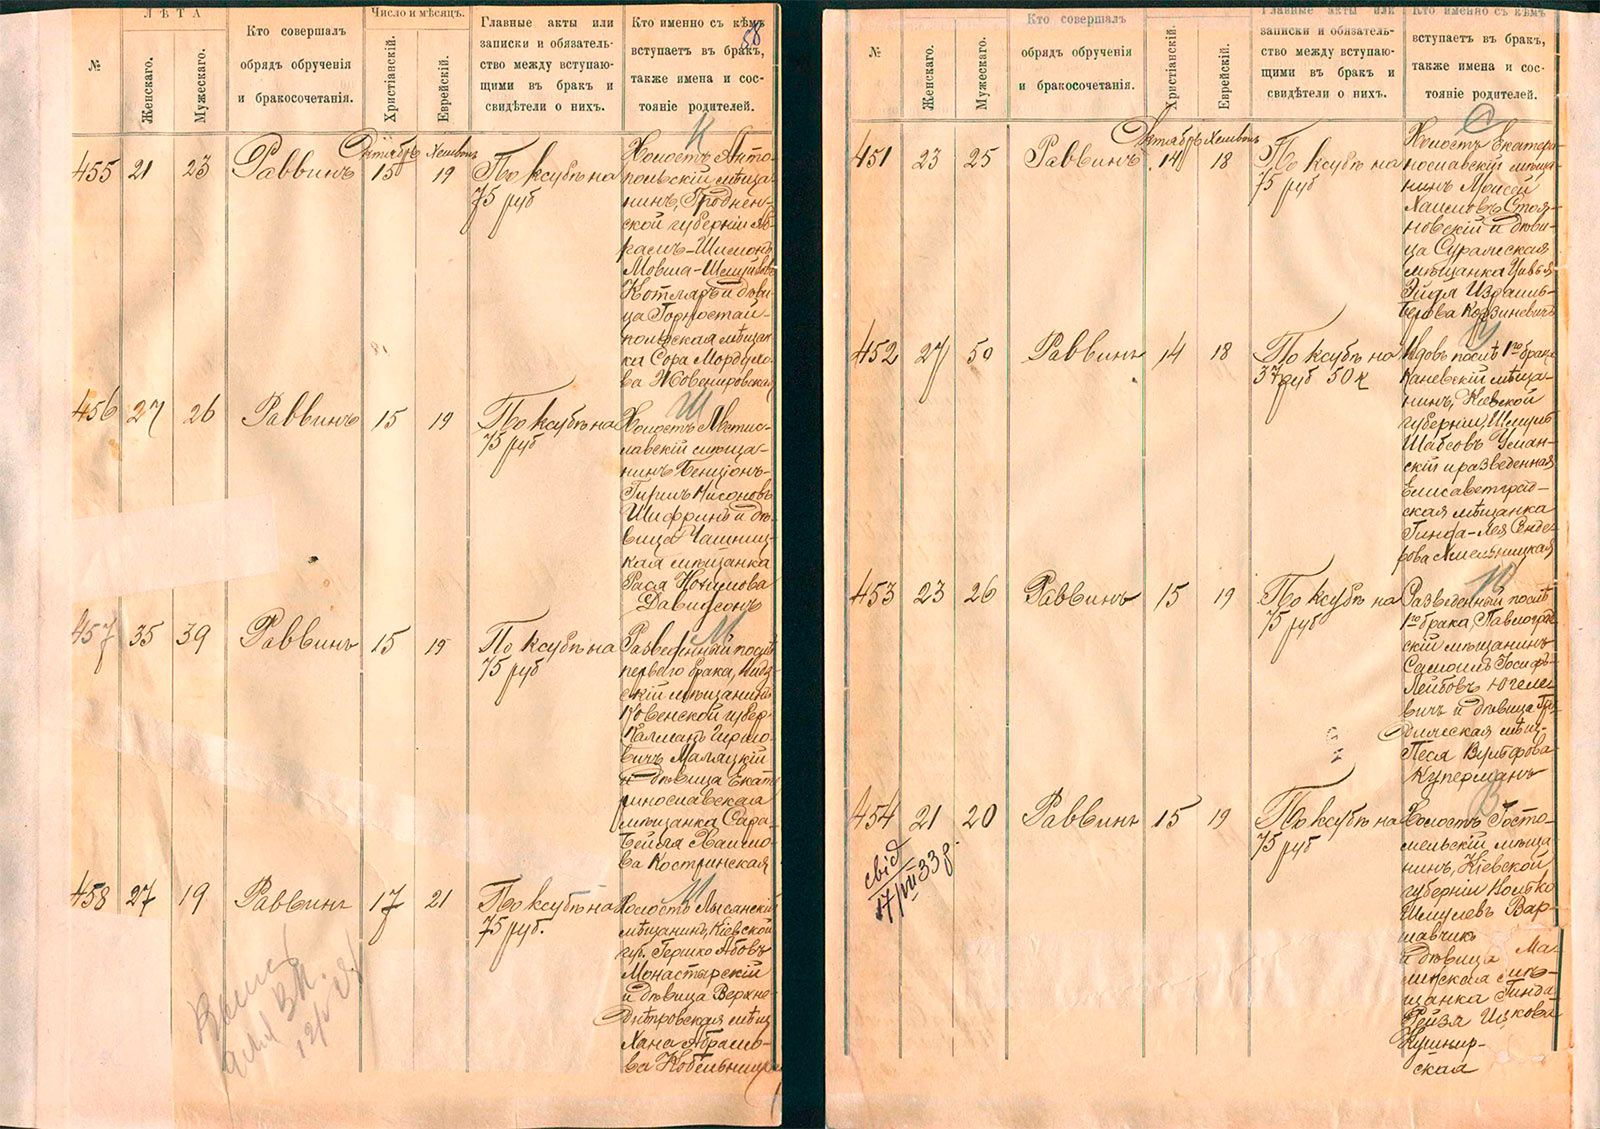 ЛѢТА
Число и мѣсяцъ.
№
Женскаго.
Мужескаго.
Кто совершалъ
обрядъ обрученія
и бракосочетанія.
Христіанскій.
Еврейскій.
Главные акты или
записки и обязатель-
ство между вступаю-
щими въ бракъ и
свидѣтели о нихъ.
Кто именно съ кѣмъ
вступаетъ въ бракъ,
также имена и сос-
тояніе родителей.
58
К
455 21 23 Раввинъ Октябрь 15 Хешвонъ 19 По ксубѣ на
75 руб
Холостъ Анто-
польскій мѣща-
нинъ, Гроднен-
ской губерніи Аб-
рамъ-Шимонъ
Мовша-Шмуйловъ
Котляръ и дѣви-
ца Горностай-
польская мѣщан-
ка Сора Мордухо-
ва
Ш
456 27 26 Раввинъ 15 19 По ксубѣ на
75 руб
Холостъ Мстис-
лавскій мѣща-
нинъ Бенціонъ-
Гиршъ Нисоновъ
Шифринъ и дѣ-
вица Чашниц-
кая мѣщанка
Рася
Давидсонъ
М
457 35 39 Раввинъ 15 19 По ксубѣ на
75 руб
Разведенный послѣ
перваго брака,
скій мѣщанинъ
Ковенской губер.
Калманъ Гиршо-
вичъ Маляцкій
и дѣвица Екате-
ринославская
мѣщанка Сара-
Бейля Хаимо-
ва Костринская
М
458 27 19 Раввинъ 17 21 По ксубѣ на
75 руб.
Холостъ Лысянскій
мѣщанинъ, Кіевской
губ. Гершко Абовъ
Монастырскій
и дѣвица Верхне-
днѣпровская мѣщ.
Хана Абрамо-
ва
№
Женскаго.
Мужескаго.
Кто совершалъ
обрядъ обрученія
и бракосочетанія.
Христіанскій.
Еврейскій.
Главные акты или
записки и обязатель-
ство между вступаю-
щими въ бракъ и
свидѣтели о нихъ.
Кто именно съ кѣмъ
вступаетъ въ бракъ,
также имена и сос-
тояніе родителей.
С
451 23 25 Раввинъ Октябрь 14 Хешвонъ 18 По ксубѣ на
75 руб
Холостъ Екатери-
нославскій мѣща-
нинъ Моисей
Хаимовъ Стоя-
новскій и дѣви-
ца Суражская
мѣщанка Цивья
Эйдля Израиль-
Берова
У
452 27 50 Раввинъ 14 18 По ксубѣ на
37 руб 50 к
Вдовъ послѣ 1го брака
Каневскій мѣща-
нинъ, Кіевской
губерніи, Шмуль
Шабсовъ Уман-
скій и разведенная
Елисаветград-
ская мѣщанка
Гинда-Лея Сенде-
рова Хмельницкая
Ю
453 23 26 Раввинъ 15 19 По ксубѣ на
75 руб
Разведенный послѣ
1го брака, Павлоград-
скій мѣщанинъ
Самоилъ Іосифъ-
Лейбовъ Югеле-
вичъ и дѣвица
мѣщ.
Песя Вульфова
Куперманъ
В
454 21 20 Раввинъ 15 19 По ксубѣ на
75 руб
Холостъ Госто-
мельскій мѣща-
нинъ, Кіевской
губерніи
Шмулевъ Вар-
шавчикъ
и дѣвица Ма-
линская мѣ-
щанка Гинда
Рейзя Ицкова
Кушнир-
ская
свід
17/VII 33 р.